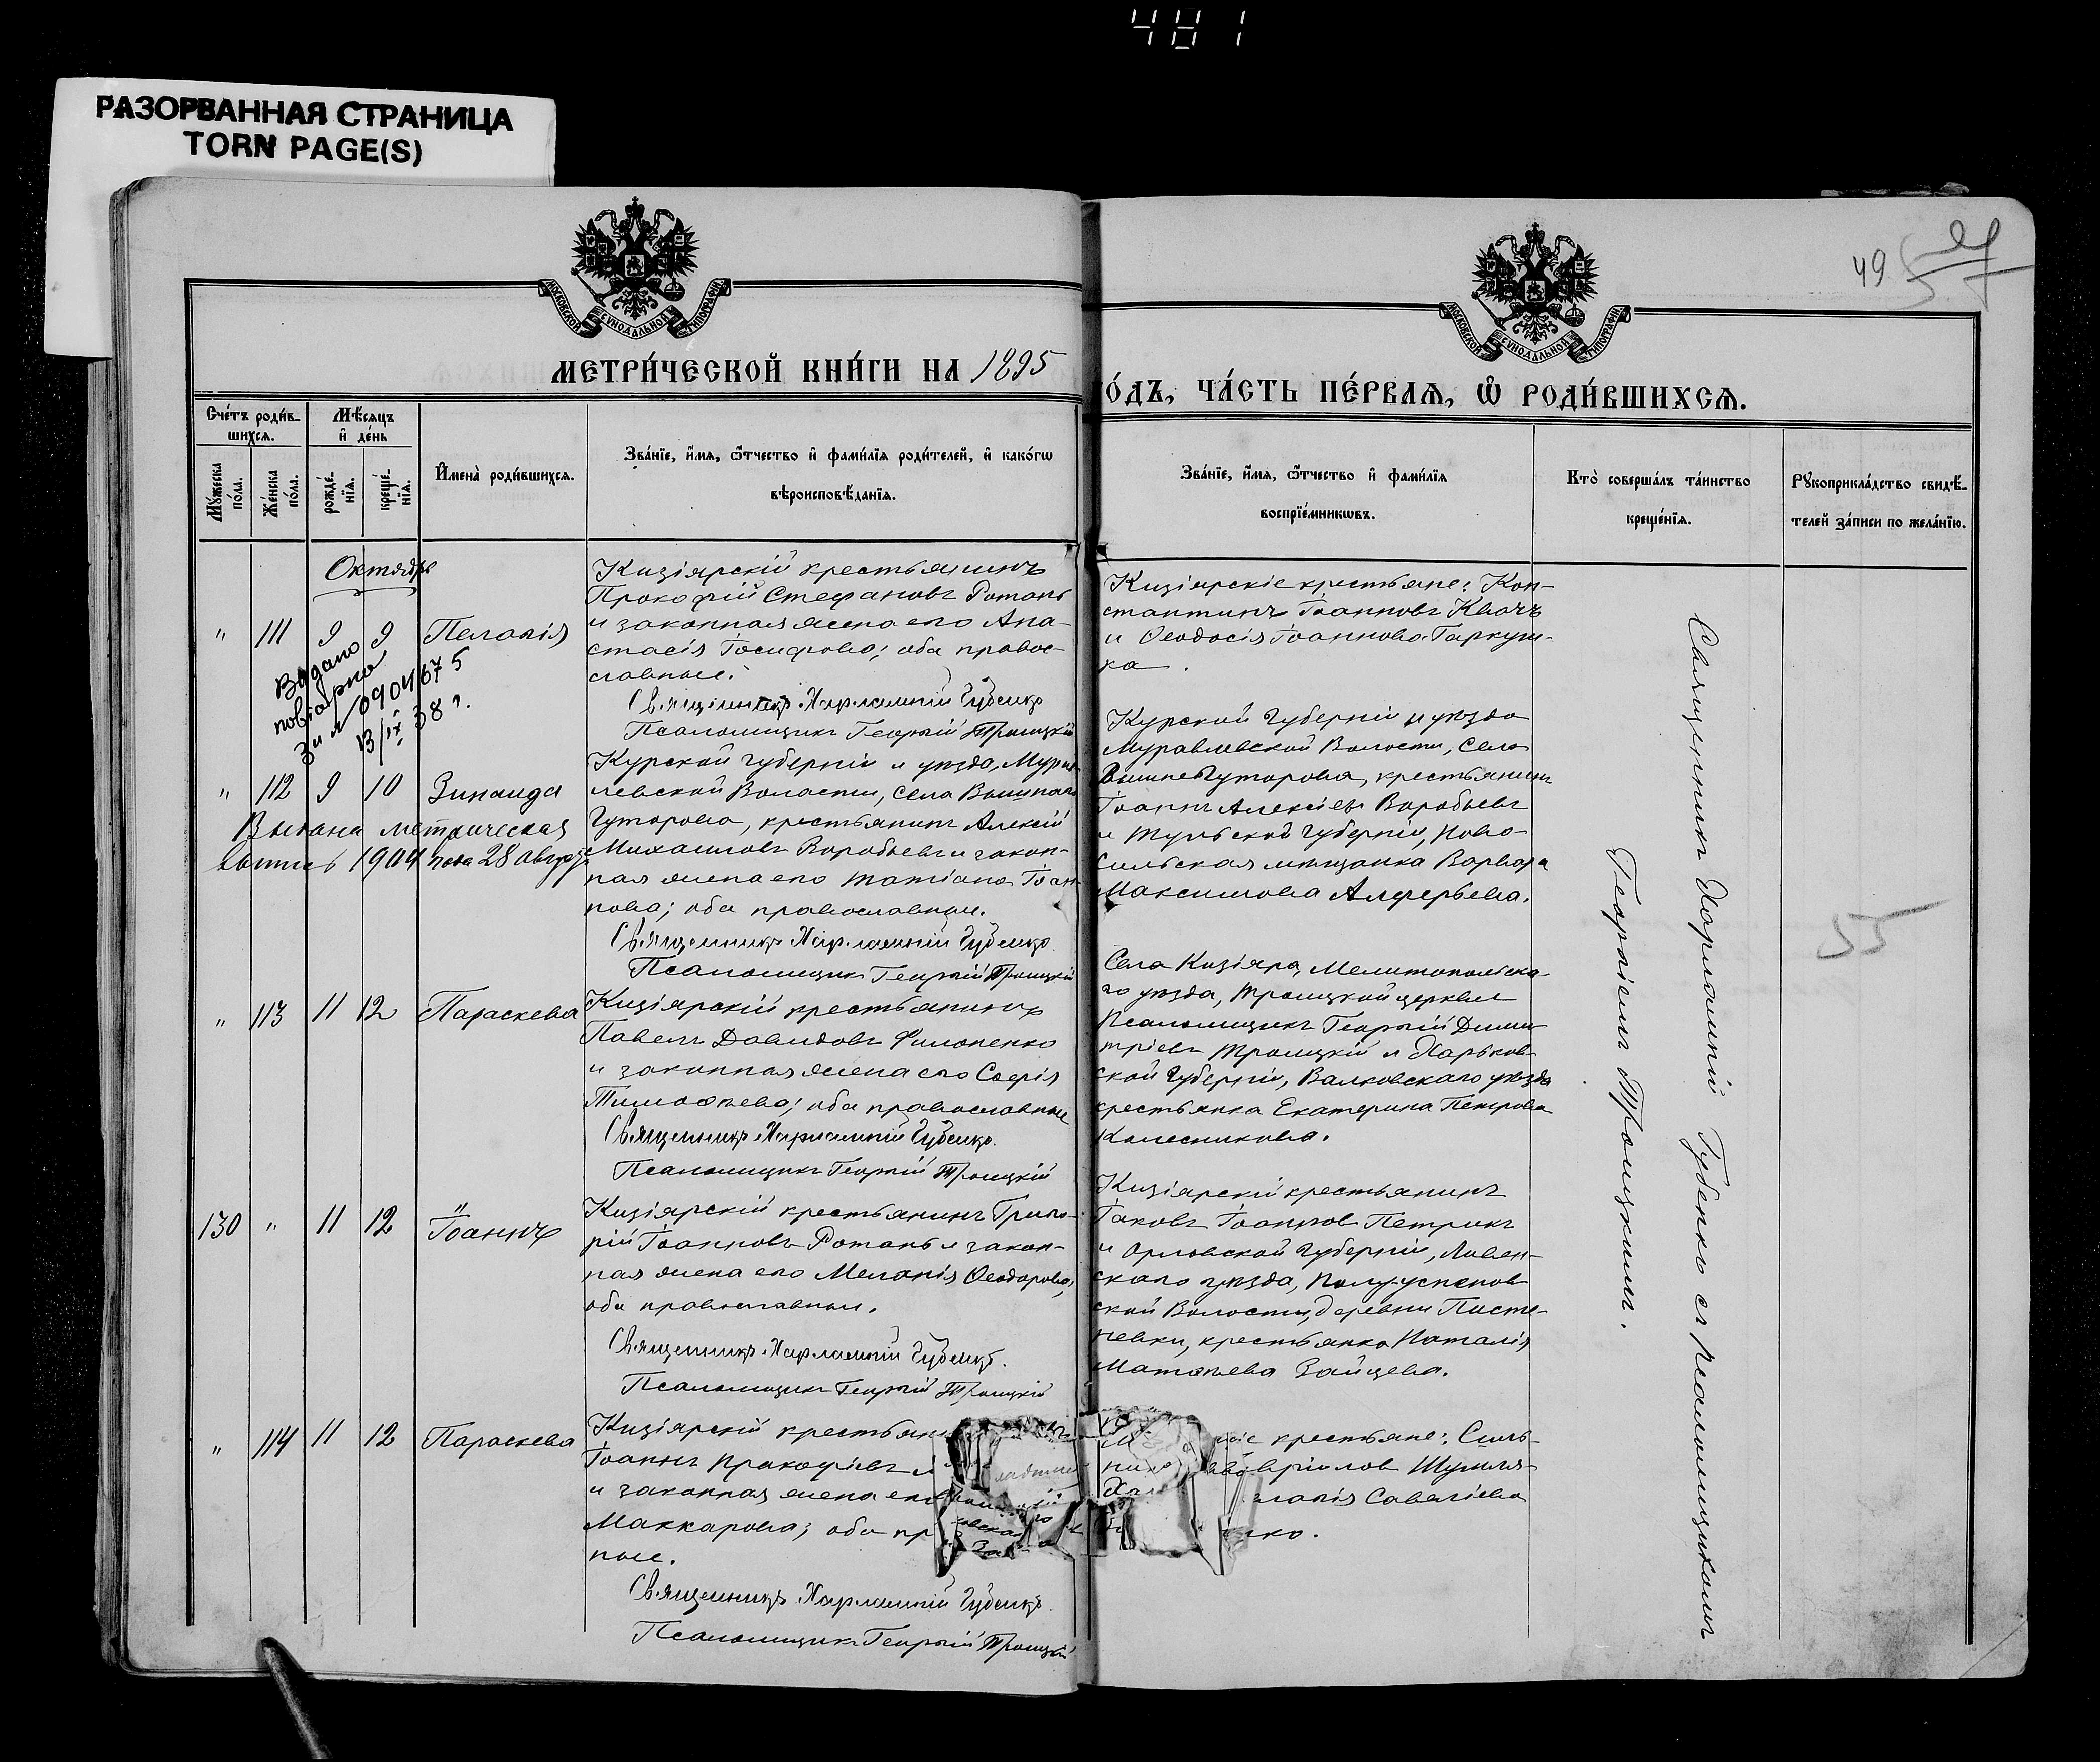 481
РАЗОРВАННАЯ СТРАНИЦА
TORN PAGE(S)
МОСКОВСКОЙ СѴНОДАЛЬНОЙ ТИПОГРАФІИ
МОСКОВСКОЙ СѴНОДАЛЬНОЙ ТИПОГРАФІИ
49
МЕТРИ́ЧЕСКОЙ КНИ́ГИ НА 1895
ГО́ДЪ, ЧА́СТЬ ПЕ́РВАѦ, Ѡ҆ РОДИ́ВШИХСѦ.
Сче́тъ роди́в-
шихсѧ.
Мꙋ́жеска по́ла.
Же́нска по́ла.
Мѣ́сѧцъ
и҆ де́нь
рожде́-
нїѧ.
креще́-
нїѧ.
И҆мена̀ роди́вшихсѧ.
Зва́нїе, и҆́мѧ, ѻ҆́тчество и҆ фами́лїѧ роди́телей, и҆ како́гѡ
вѣроисповѣ́данїѧ.
Зва́нїе, и҆́мѧ, ѻ҆́тчество и҆ фами́лїѧ
воспрїе́мникѡвъ.
Кто̀ соверша́лъ та́инство
креще́нїѧ.
Рꙋкоприкла́дство свидѣ́-
телей за́писи по жела́нїю.
Октябрь
" 111 9 9 Пелагія
Кизіярскій крестьянинъ
Прокофій Стефановъ Ротань
и законная жена его Ана-
стасія Іосифова; оба право-
славные.
Священникъ Харлампій Губенко
Псаломщикъ Георгій Троицкій
Кизіярскіе крестьяне: Кон-
стантинъ Іоанновъ Квачъ
и Ѳеодосія Іоаннова Гаркуш-
ка.
Видано
повіарно
за № 0904675
13/IX 38 г.
" 112 9 10 Зинаида
Выдана метрическая
выпись 1904 года 28 августа
Курской губерніи и уѣзда, Мурав-
левской Волости, села Вышняго
Гуторова, крестьянинъ Алексій
Михаиловъ Воробьевъ и закон-
ная жена его Татіана Іоан-
нова; оба православные.
Священникъ Харлампій Губенко
Псаломщикъ Георгій Троицкій
Курской губерніи и уѣзда
Муравлевской Волости, села
Вышнегуторова, крестьянинъ
Іоаннъ Алексіевъ Воробьевъ
и Тульской губерніи, Ново-
сильская мѣщанка Варвара
Максимова Алферьева.
" 113 11 12 Параскева
Кизіярскій крестьянинъ
Павелъ Давидовъ Филоненко
и законная жена его Софія
Тимофѣева; оба православные
Священникъ Харлампій Губенко.
Псаломщикъ Георгій Троицкій
Села Кизіяра, Мелитопольска-
го уѣзда, Троицкой церкви
Псаломщикъ Георгій Дими-
тріевъ Троицкій и Харьков-
ской губерніи, Валковскаго уѣзда
крестьянка Екатерина Петрова
Колесникова.
130 " 11 12 Іоаннъ
Кизіярскій крестьянинъ Григо-
рій Іоанновъ Ротань и закон-
ная жена его Меланія Ѳеодорова;
оба православные.
Священникъ Харлампій Губенко.
Псаломщикъ Георгій Троицкій
Кизіярскій крестьянинъ
Іаковъ Іоанновъ Петрикъ
и Орловской губерніи, Ливен-
скаго уѣзда,
ской Волости, деревни
крестьянка Наталія
Матѳѣева Зайцева.
" 114 11 12 Параскева
Кизіярскій крестьян
Іоаннъ Прокофіевъ
и законная жена его
Маккарова; оба пр
ные.
Священникъ Харлампій Губенко.
Псаломщикъ Георгій Троицкій
крестьяне: Силь-
Гавріилов
Савеліева
нко.
Священникъ Харлампій Губенко съ псаломщикомъ
Георгіемъ Троицкимъ.
55